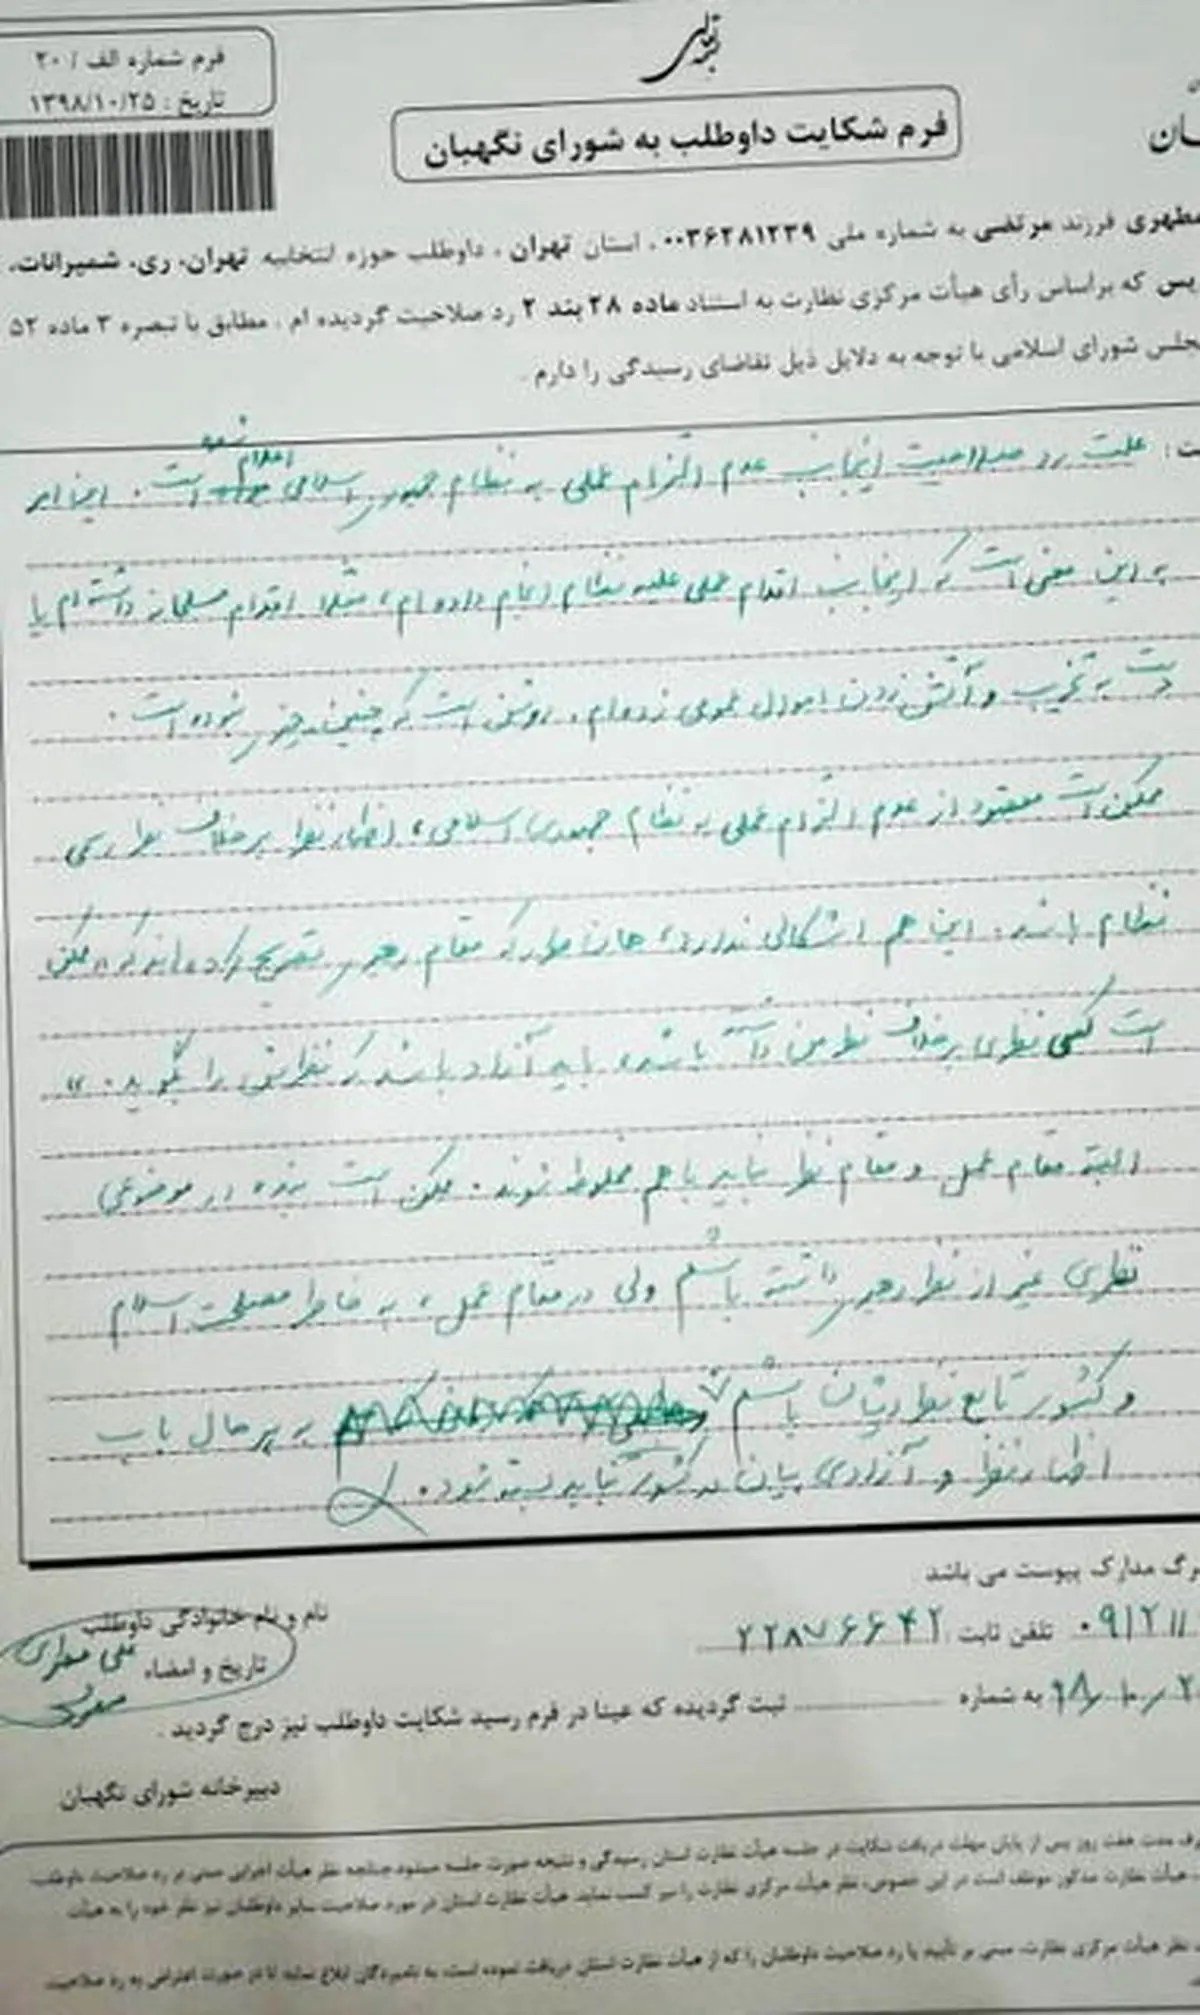 بسمه تعالی
فرم شماره الف / ۲۰
تاریخ : ۱۳۹۸/۱۰/۲۵
فرم شکایت داوطلب به شورای نگهبان
مطهری فرزند مرتضی به شماره ملی ۰۰۳۶۲۸۱۲۳۹ ، استان تهران ، داوطلب حوزه انتخابیه تهران، ری، شمیرانات،
پس که براساس رأی هیأت مرکزی نظارت به استناد ماده ۲۸ بند ۲ رد صلاحیت گردیده ام . مطابق با تبصره ۳ ماده ۵۲
مجلس شورای اسلامی با توجه به دلایل ذیل تقاضای رسیدگی را دارم .
علت رد صلاحیت اینجانب عدم التزام عملی به نظام جمهوری اسلامی اعلام شده است . این امر
به این معنی است که اینجانب اقدام عملی علیه نظام انجام داده ام ، مثلا اقدام مسلحانه داشته ام یا
دست به تخریب و آتش زدن اموال عمومی زده ام . روشن است که چنین چیزی نبوده است .
ممکن است مقصود از عدم التزام عملی به نظام جمهوری اسلامی ، اظهارنظر برخلاف نظر رسمی
نظام باشد . این هم اشکالی ندارد ، همانطور که مقام رهبری تصریح کرده اند که «ممکن
است کسی نظری برخلاف نظر من داشته باشد ، باید آزاد باشد که نظرش را بگوید .»
البته مقام عمل و مقام نظر نباید با هم مخلوط شوند . ممکن است بنده در موضوعی
نظری غیر از نظر رهبری داشته باشم ولی در مقام عمل ، به خاطر مصلحت اسلام
و کشور تابع نظر ایشان باشم . به هر حال باب
اظهارنظر و آزادی بیان در کشور نباید بسته شود .
برگ مدارک پیوست می باشد
۰۹۱۲۱۱ تلفن ثابت ۲۲۸۷۶۶۴۲
نام و نام خانوادگی داوطلب
علی مطهری
تاریخ و امضاء
به شماره ثبت گردیده که عینا در فرم رسید شکایت داوطلب نیز درج گردید .
دبیرخانه شورای نگهبان
مدت هفت روز پس از پایان مهلت دریافت شکایت در جلسه هیأت نظارت استان رسیدگی و نتیجه صورت جلسه میشود چنانچه نظر هیأت اجرایی مبنی بر رد صلاحیت داوطلب
هیأت نظارت مذکور موظف است در این خصوص، نظر هیأت مرکزی نظارت را نیز کسب نماید. هیأت نظارت استان در مورد صلاحیت سایر داوطلبان نیز نظر خود را به هیأت
نظر هیأت مرکزی نظارت، مبنی بر تأیید یا رد صلاحیت داوطلبان را که از هیأت نظارت استان دریافت نموده است، به نامبردگان ابلاغ نماید تا در صورت اعتراض به رد صلاحیت